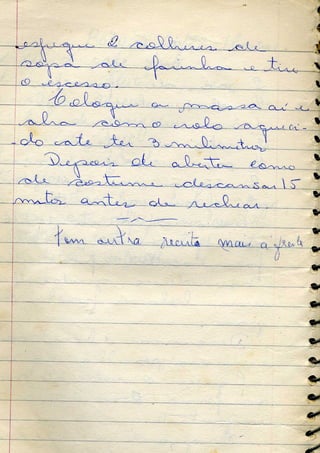 esfregue 2 colheres de
sopa de farinha e tire
o excesso.
Coloque a massa aí e
abra com o rolo aqueci-
do até ter 3 milimitros
Depois de aberta como
de costume descansar 15
mntos antes de rechear.
tem outra receita mais a frente